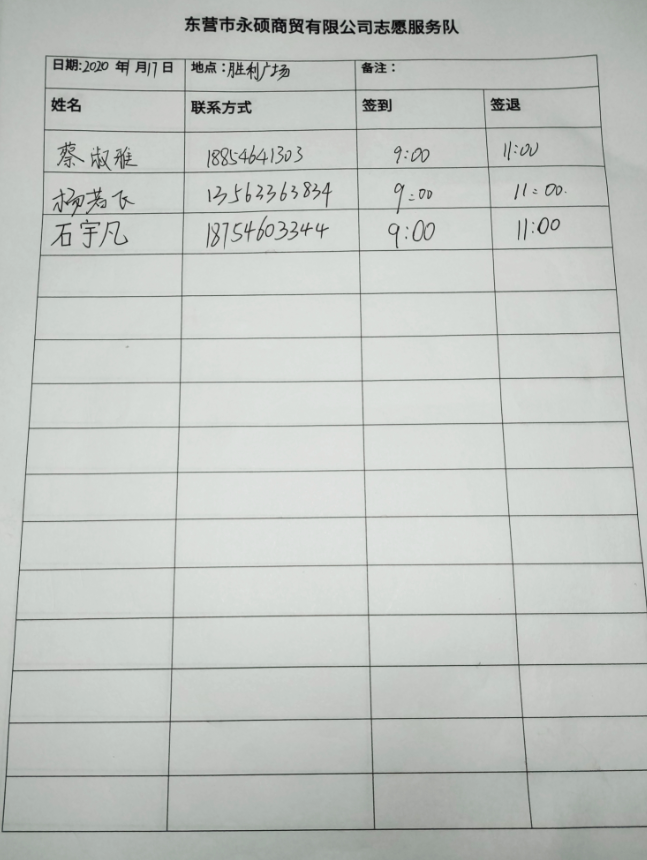 东营市永硕商贸有限公司志愿服务队
日期:2020 年 月17日 地点:胜利广场 备注:
姓名 联系方式 签到 签退
蔡淑雅 18854641303 9:00 11:00
杨若飞 13563363834 9:00 11:00.
石宇凡 18754603344 9:00 11:00